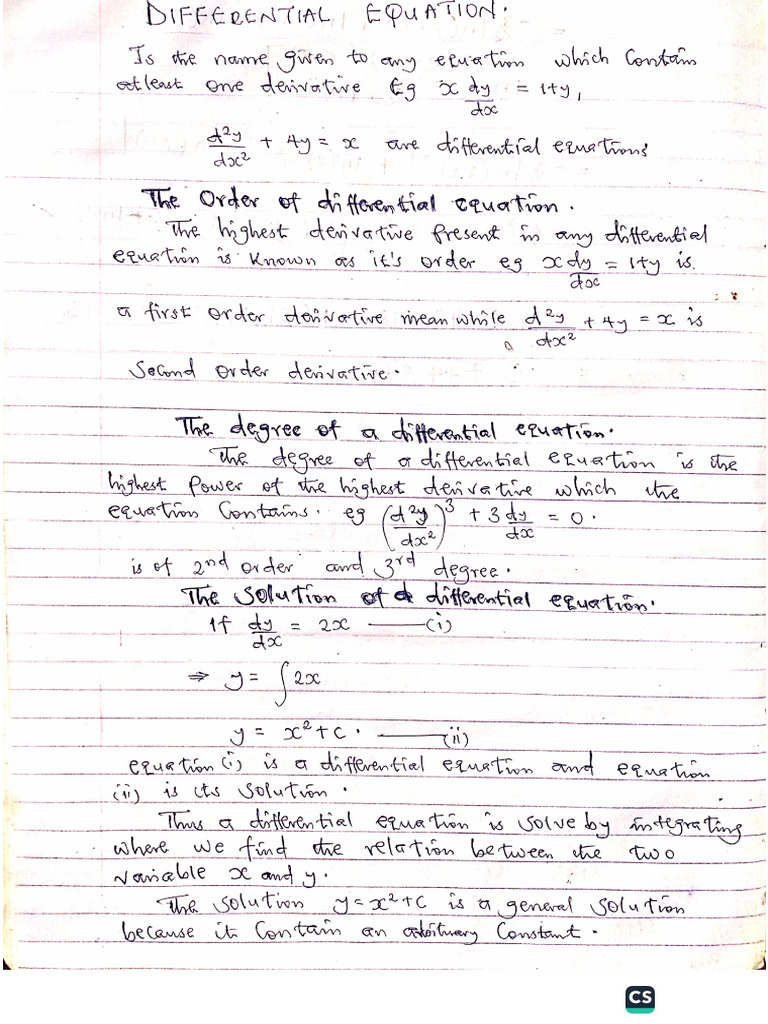 DIFFERENTIAL EQUATION.
Is the name given to any equation which Contain
atleast one derivative Eg x dy/dx = 1+y,
d²y/dx² + 4y = x are differential equations
The Order of differential equation.
The highest derivative Present in any differential
equation is known as it's order eg x dy/dx = 1+y is
a first order derivative mean while d²y/dx² + 4y = x is
Second order derivative.
The degree of a differential equation.
The degree of a differential equation is the
highest Power of the highest derivative which the
equation Contains. eg (d²y/dx²)³ + 3 dy/dx = 0.
is of 2nd order and 3rd degree.
The Solution of a differential equation.
If dy/dx = 2x ——(i)
⇒ y = ∫2x
y = x² + C. ——(ii)
equation (i) is a differential equation and equation
(ii) is its solution.
Thus a differential equation is solve by integrating
where we find the relation between the two
variable x and y.
The solution y = x² + C is a general solution
because it Contain an arbitrary Constant.
CS